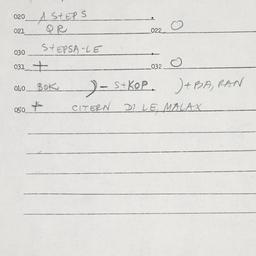 020 A STEPS
021 QR 022 O
030 STEPSA-LE
031 + 032 O
040 BOK )- S+KOP. )+BA, RAN
050 + CITERN DI LE, MALAX